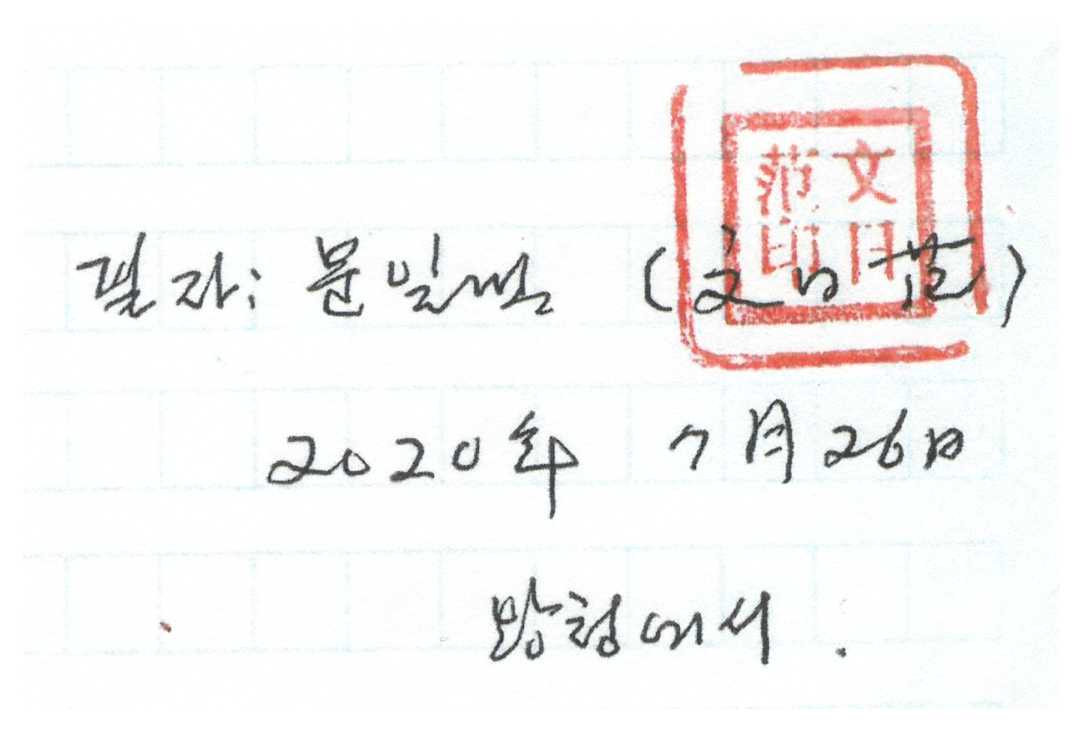 文日
范印
필자: 문일범 (文日范)
2020年 7月 26日
망청에서.